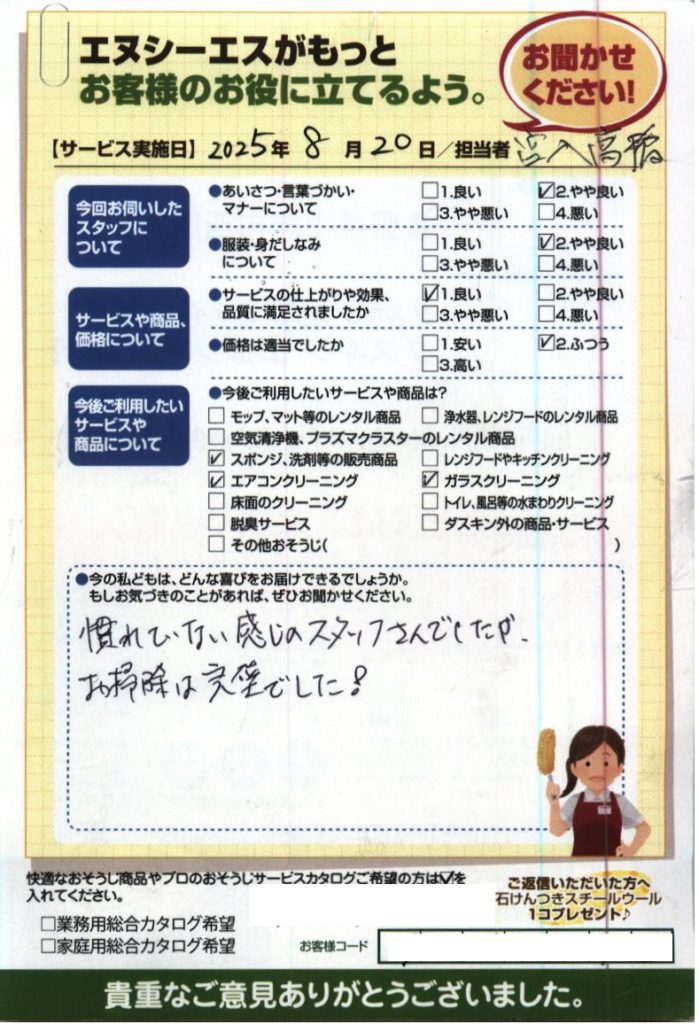 エヌシーエスがもっと
お客様のお役に立てるよう。
お聞かせ
ください!
【サービス実施日】2025年 8 月 20 日/担当者 高橋
今回お伺いした
スタッフに
ついて
●あいさつ・言葉づかい・
マナーについて
□1.良い ☑2.やや良い
□3.やや悪い □4.悪い
●服装・身だしなみ
について
□1.良い ☑2.やや良い
□3.やや悪い □4.悪い
サービスや商品、
価格について
●サービスの仕上がりや効果、
品質に満足されましたか
☑1.良い □2.やや良い
□3.やや悪い □4.悪い
●価格は適当でしたか
□1.安い ☑2.ふつう
□3.高い
今後ご利用したい
サービスや
商品について
●今後ご利用したいサービスや商品は?
□ モップ、マット等のレンタル商品 □ 浄水器、レンジフードのレンタル商品
□ 空気清浄機、プラズマクラスターのレンタル商品
☑ スポンジ、洗剤等の販売商品 □ レンジフードやキッチンクリーニング
☑ エアコンクリーニング ☑ ガラスクリーニング
□ 床面のクリーニング □ トイレ、風呂等の水まわりクリーニング
□ 脱臭サービス □ ダスキン外の商品・サービス
□ その他おそうじ( )
●今の私どもは、どんな喜びをお届けできるでしょうか。
もしお気づきのことがあれば、ぜひお聞かせください。
慣れていない感じのスタッフさんでしたが、
お掃除は完璧でした!
快適なおそうじ商品やプロのおそうじサービスカタログご希望の方は☑を
入れてください。
□業務用総合カタログ希望
□家庭用総合カタログ希望
ご返信いただいた方へ
石けんつきスチールウール
1コプレゼント♪
お客様コード
貴重なご意見ありがとうございました。